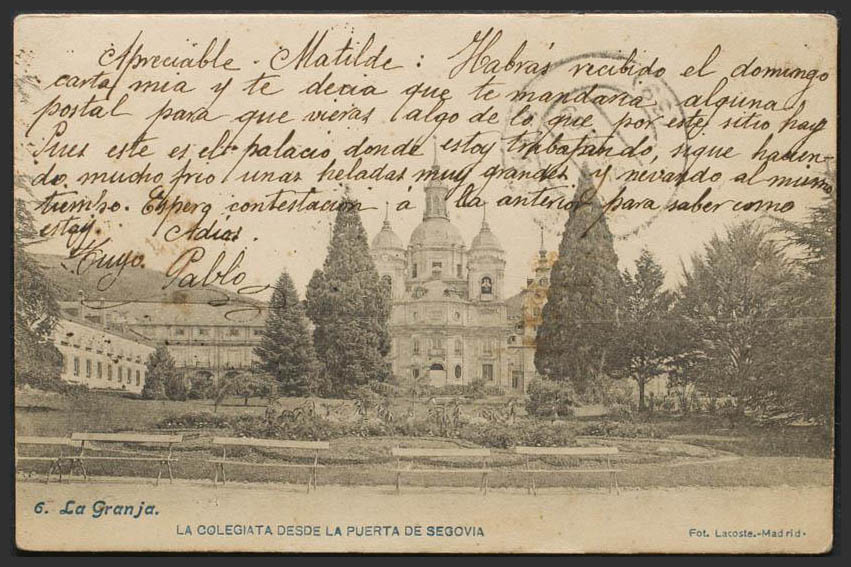 Apreciable. Matilde: Habrás recibido el domingo
carta mia y te decia que te mandaria alguna
postal para que vieras algo de lo que por este sitio hay
Pues este es el palacio donde estoy trabajando, sigue hacien-
do mucho frio unas heladas muy grandes y nevando al mismo
tiempo. Espero contestacion á la anterior para saber como
estay. Adios.
Tuyo. Pablo
6. La Granja.
LA COLEGIATA DESDE LA PUERTA DE SEGOVIA
Fot. Lacoste.-Madrid-